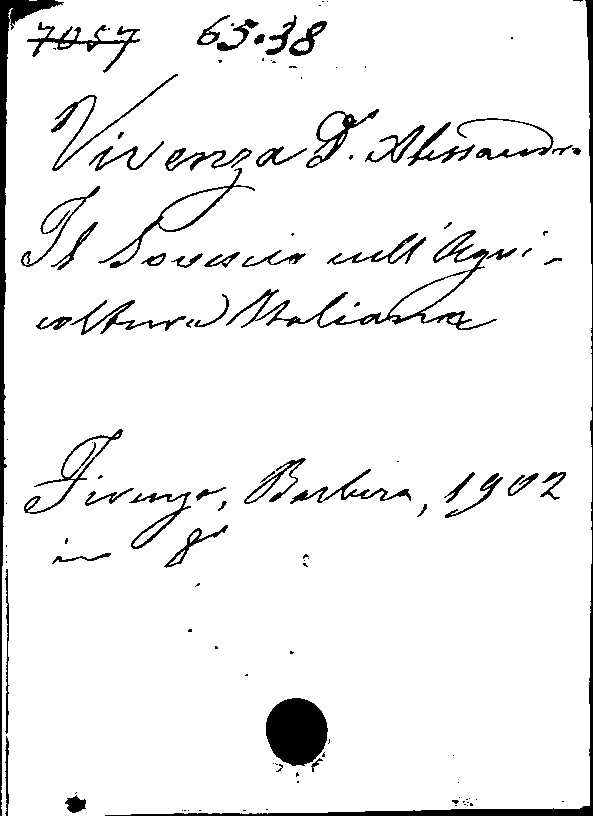 7057 65.38
Vivenza Dr. Alessandro
Il Sovescio nell'Agri-
coltura Italiana
Firenze, Barbera, 1902
in 8°